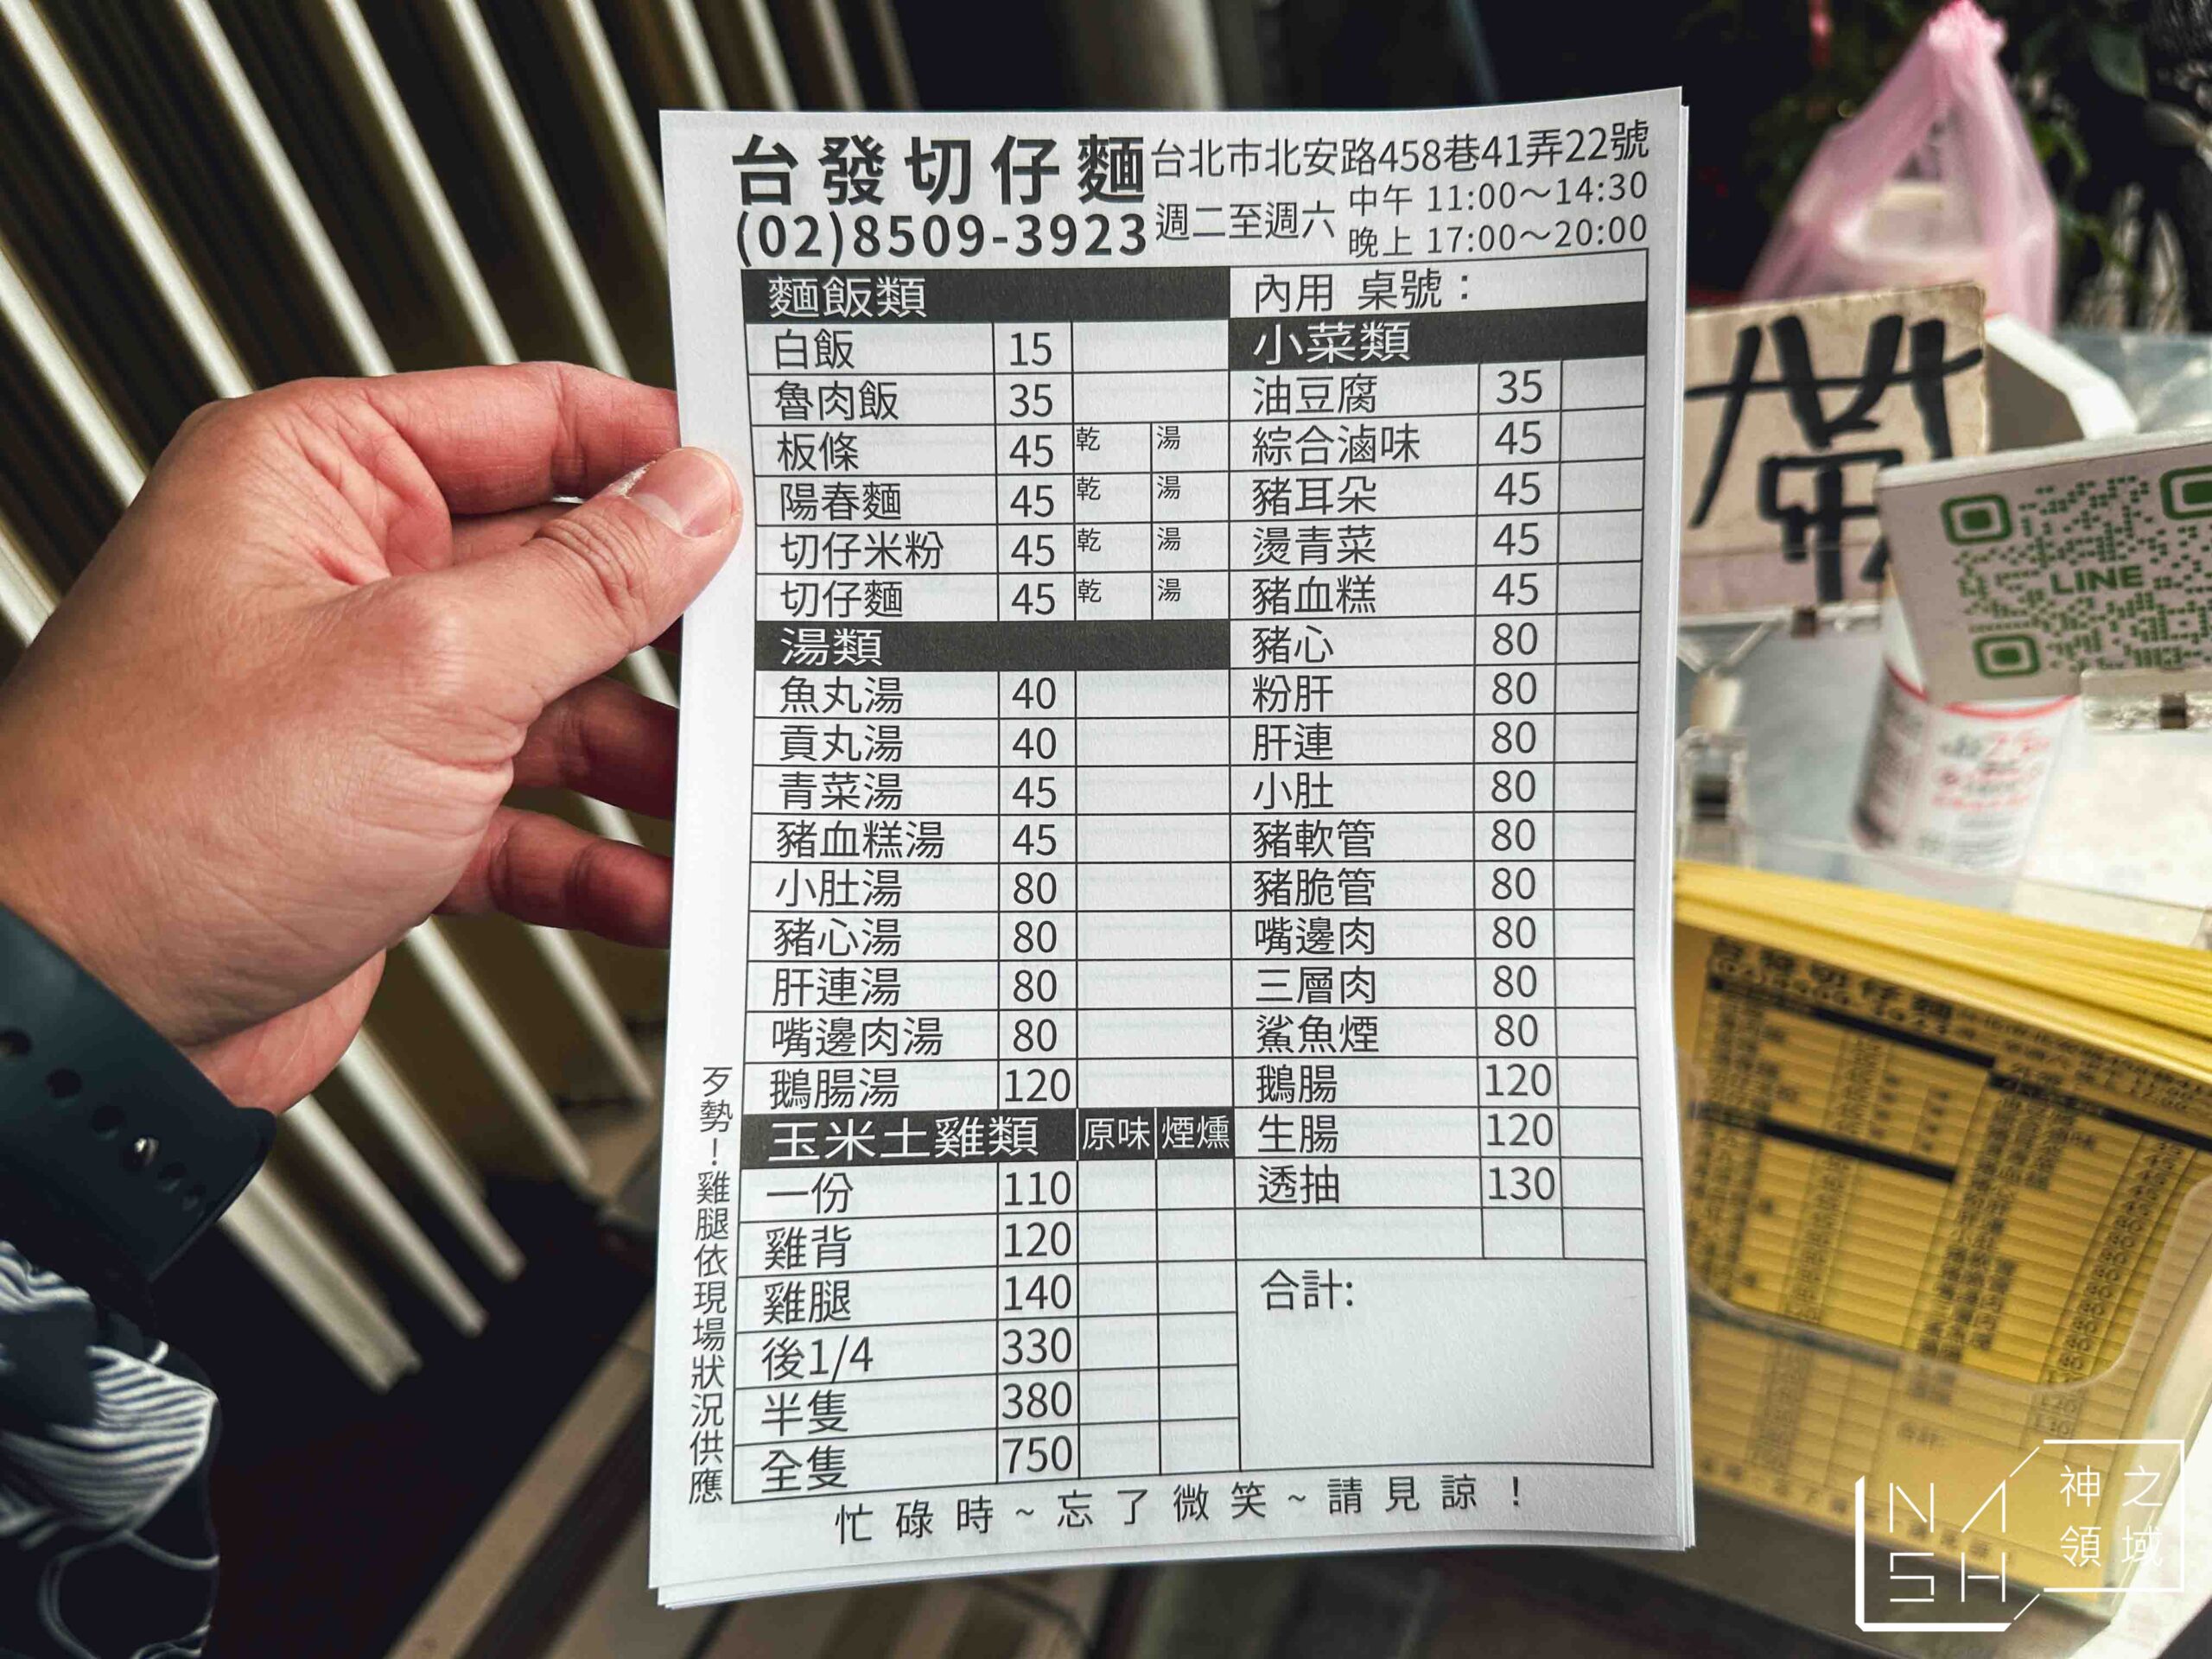 台發切仔麵
台北市北安路458巷41弄22號
(02)8509-3923
週二至週六
中午 11:00～14:30
晚上 17:00～20:00
麵飯類
白飯 15
魯肉飯 35
板條 45 乾 湯
陽春麵 45 乾 湯
切仔米粉 45 乾 湯
切仔麵 45 乾 湯
湯類
魚丸湯 40
貢丸湯 40
青菜湯 45
豬血糕湯 45
小肚湯 80
豬心湯 80
肝連湯 80
嘴邊肉湯 80
鵝腸湯 120
玉米土雞類 原味 煙燻
一份 110
雞背 120
雞腿 140
後1/4 330
半隻 380
全隻 750
內用 桌號：
小菜類
油豆腐 35
綜合滷味 45
豬耳朵 45
燙青菜 45
豬血糕 45
豬心 80
粉肝 80
肝連 80
小肚 80
豬軟管 80
豬脆管 80
嘴邊肉 80
三層肉 80
鯊魚煙 80
鵝腸 120
生腸 120
透抽 130
合計:
歹勢！雞腿依現場狀況供應
忙碌時~忘了微笑~請見諒！
LINE
台發切仔麵
NASH
神之
領域